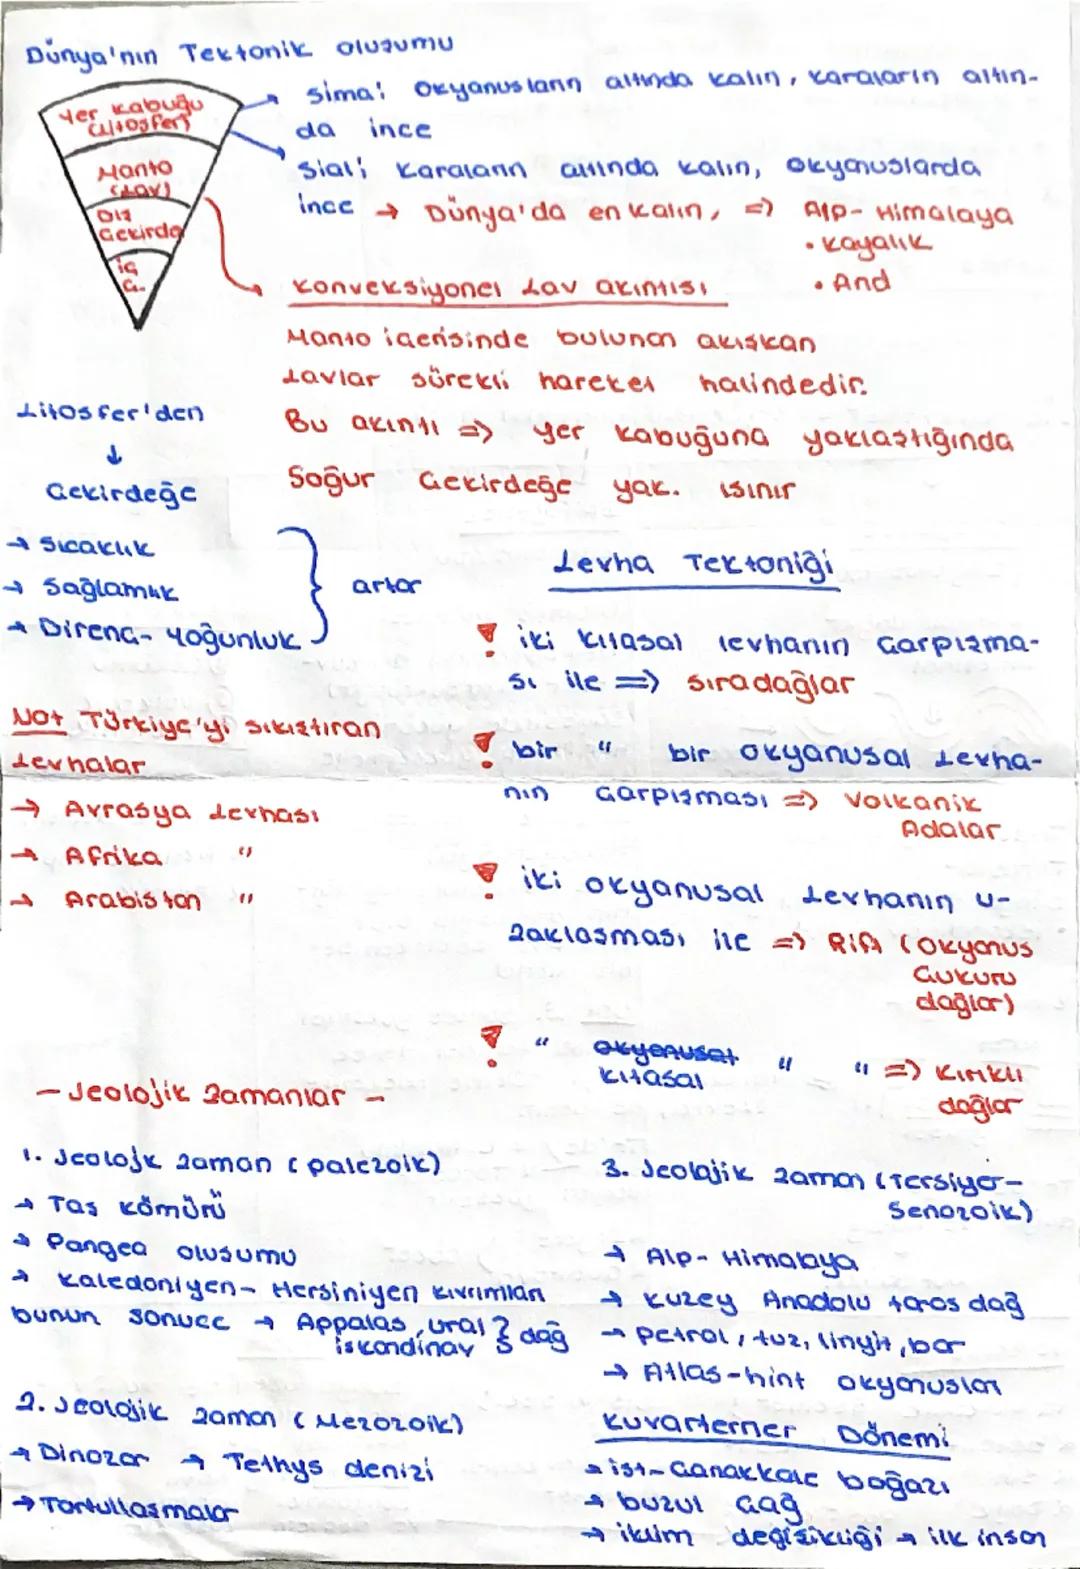 Dünya'nın Tektonik oluşumu
Yer kabuğu
(Litosfer)
Manto
(Lav)
Dış
Çekirdeğ
iç
Ç.
→ Sima: Okyanusların altında kalın, karaların altın-
da ince
→ Sial; Karaların altında kalın, Okyanuslarda
ince → Dünya'da en kalın, => Alp-Himalaya
• kayalık
• And
Konveksiyonel Lav akıntısı
Manto içerisinde bulunan akışkan
Lavlar sürekli hareket halindedir.
Bu akıntı => yer kabuğuna yaklaştığında
Soğur Çekirdeğe yak. ısınır
Litosfer'den
↓
Çekirdeğe
→ Sıcaklık
→ Sağlamlık
→ Direnç- Yoğunluk
artar
Levha Tektoniği
! iki kıtasal levhanın Çarpışma-
sı ile => sıradağlar
! bir " bir okyanusal Levha-
nın Çarpışması => Volkanik
Adalar
! iki okyanusal Levhanın u-
zaklaşması ile => Rift (Okyanus
Çukuru
dağlar)
! " okyanusal " " => Kırıklı
kıtasal
dağlar
Not Türkiye'yi sıkıştıran
Levhalar
→ Avrasya Levhası
→ Afrika "
→ Arabistan "
- Jeolojik Zamanlar -
1. Jeolojk zaman (paleozoik)
→ Taş kömürü
→ Pangea oluşumu
→ Kaledoniyen- Hersiniyen kıvrımları
bunun sonucc → Appalaş, ural } dağ
iskandinav
2. Jeolojik zaman (Mezozoik)
→ Dinozor → Tethys denizi
→ Tortullaşmalar
3. Jeolojik zaman (Tersiyer-
Senozoik)
→ Alp- Himalaya
→ Kuzey Anadolu toros dağ
→ petrol, tuz, linyit, bor
→ Atlas-hint okyanusları
Kuvarterner Dönemi
→ ist- Çanakkale boğazı
→ buzul Çağ
→ iklim değişikliği → ilk insan